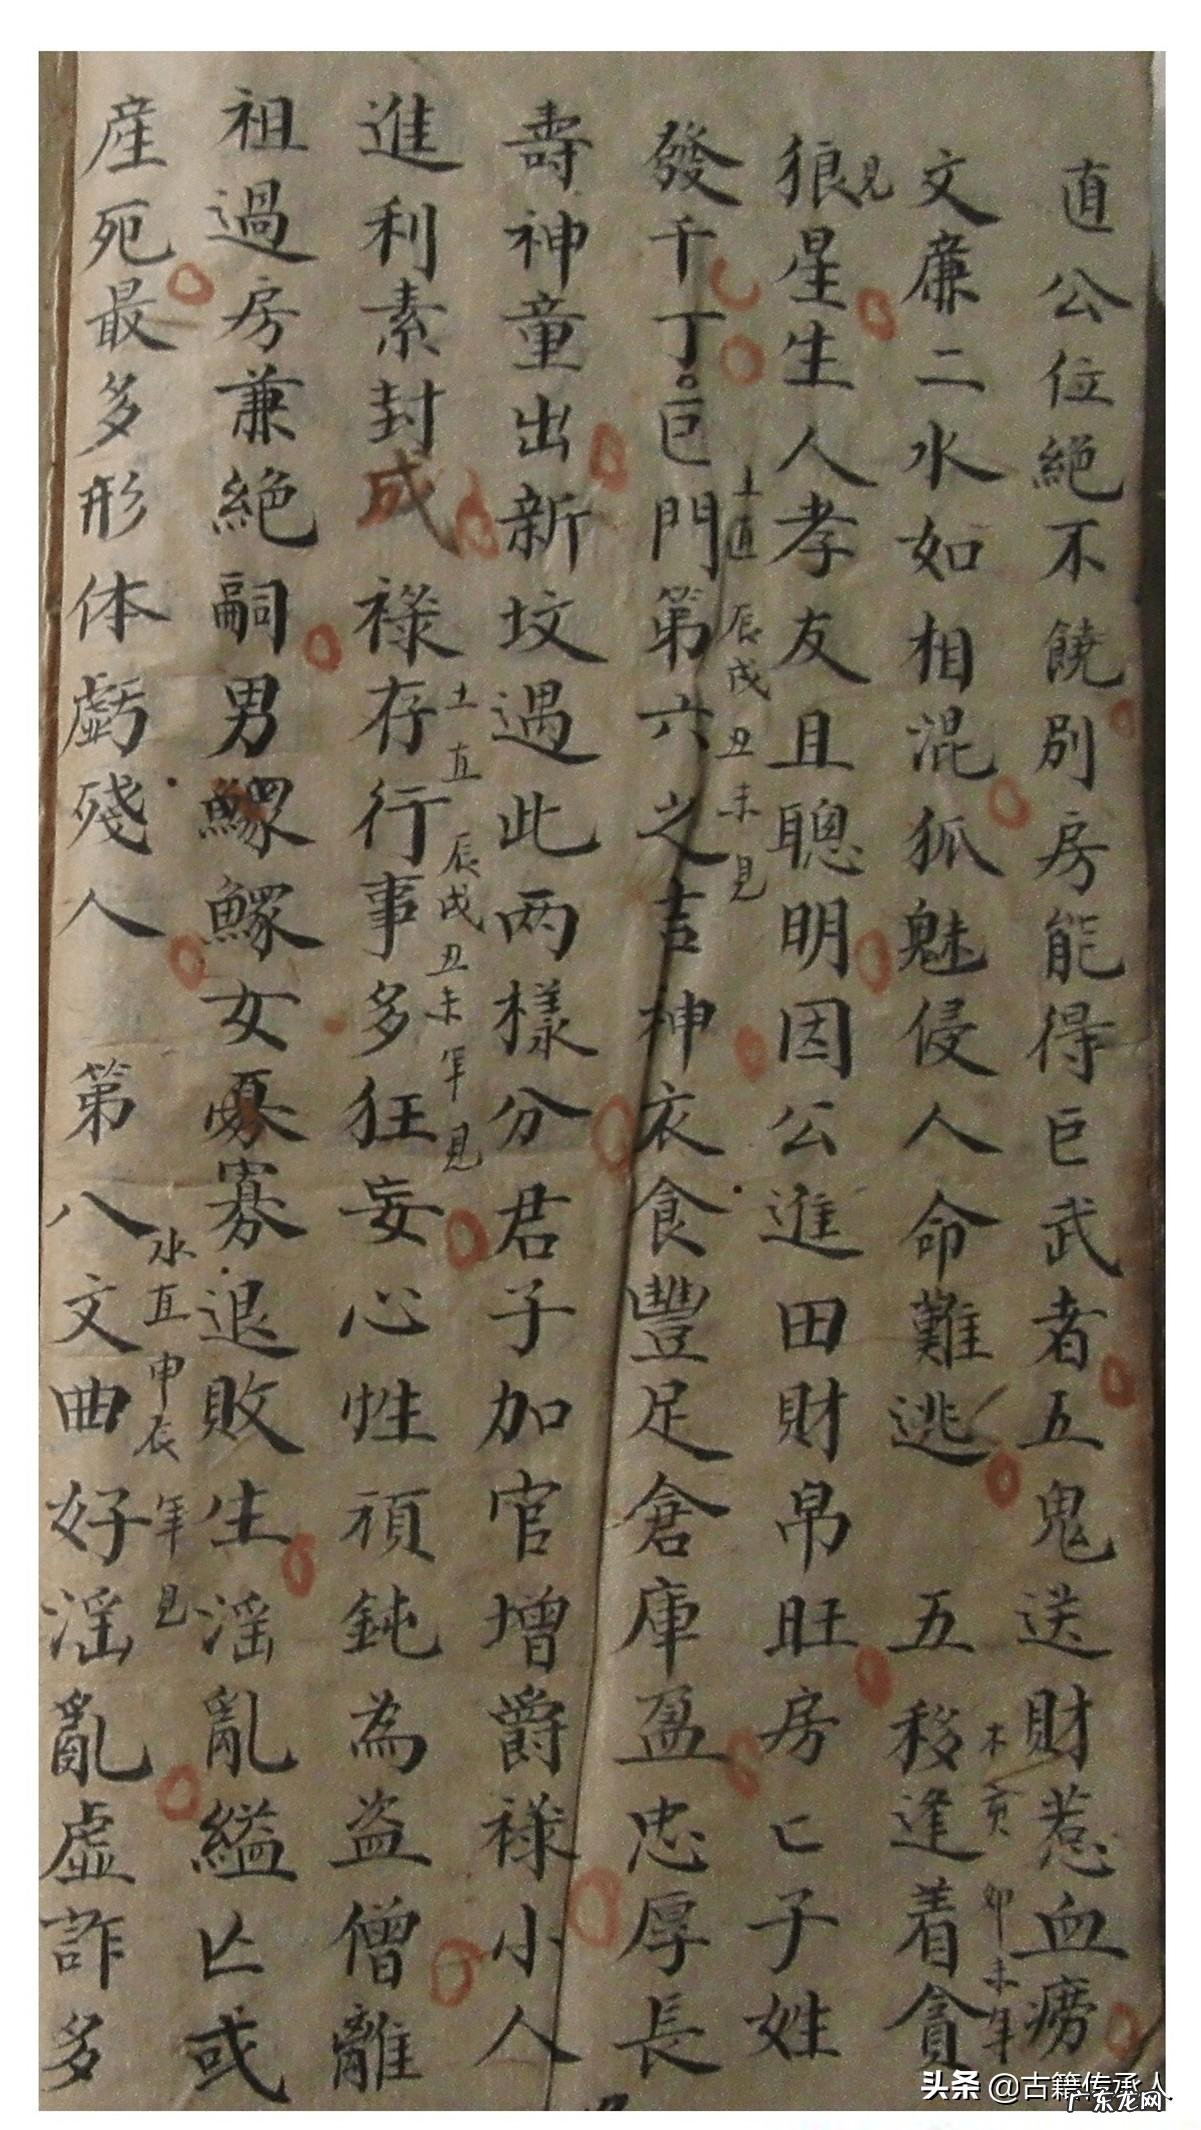 直公位絶不饒別房能得巨武者五鬼送財惹血癆
文廉二水如相混狐魅侵人命難逃 五移逢着貪
木亥卯未年
狼星生人孝友且聰明因公進田財帛旺房亡子姓
見
發千丁巨門第六之吉神衣食豐足倉庫盈忠厚長
土直辰戌丑未見
壽神童出新坟遇此两樣分君子加官增爵祿小人
進利素封成 祿存行事多狂妄心性頑鈍為盗僧離
土直辰戌丑未年見
祖過房兼絶嗣男鰥鰥女寡寡退敗生淫亂縊亡或
産死最多形体虧殘人 第八文曲好淫亂虛詐多
水直申辰年見
头条 @古籍传承人
广东龙网